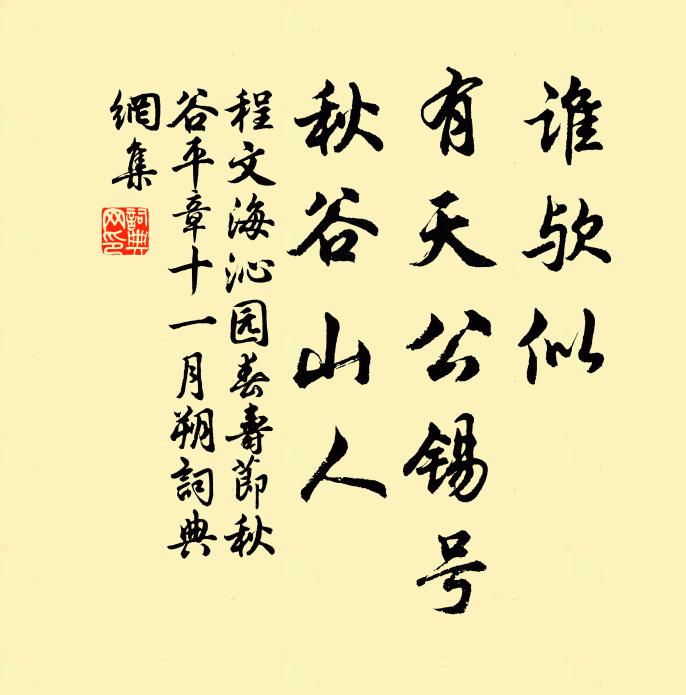 谁欤似
有天公锡号
秋谷山人
程文海沁园春寿節秋
谷平章十一月朔詞典
網集
詞典网印